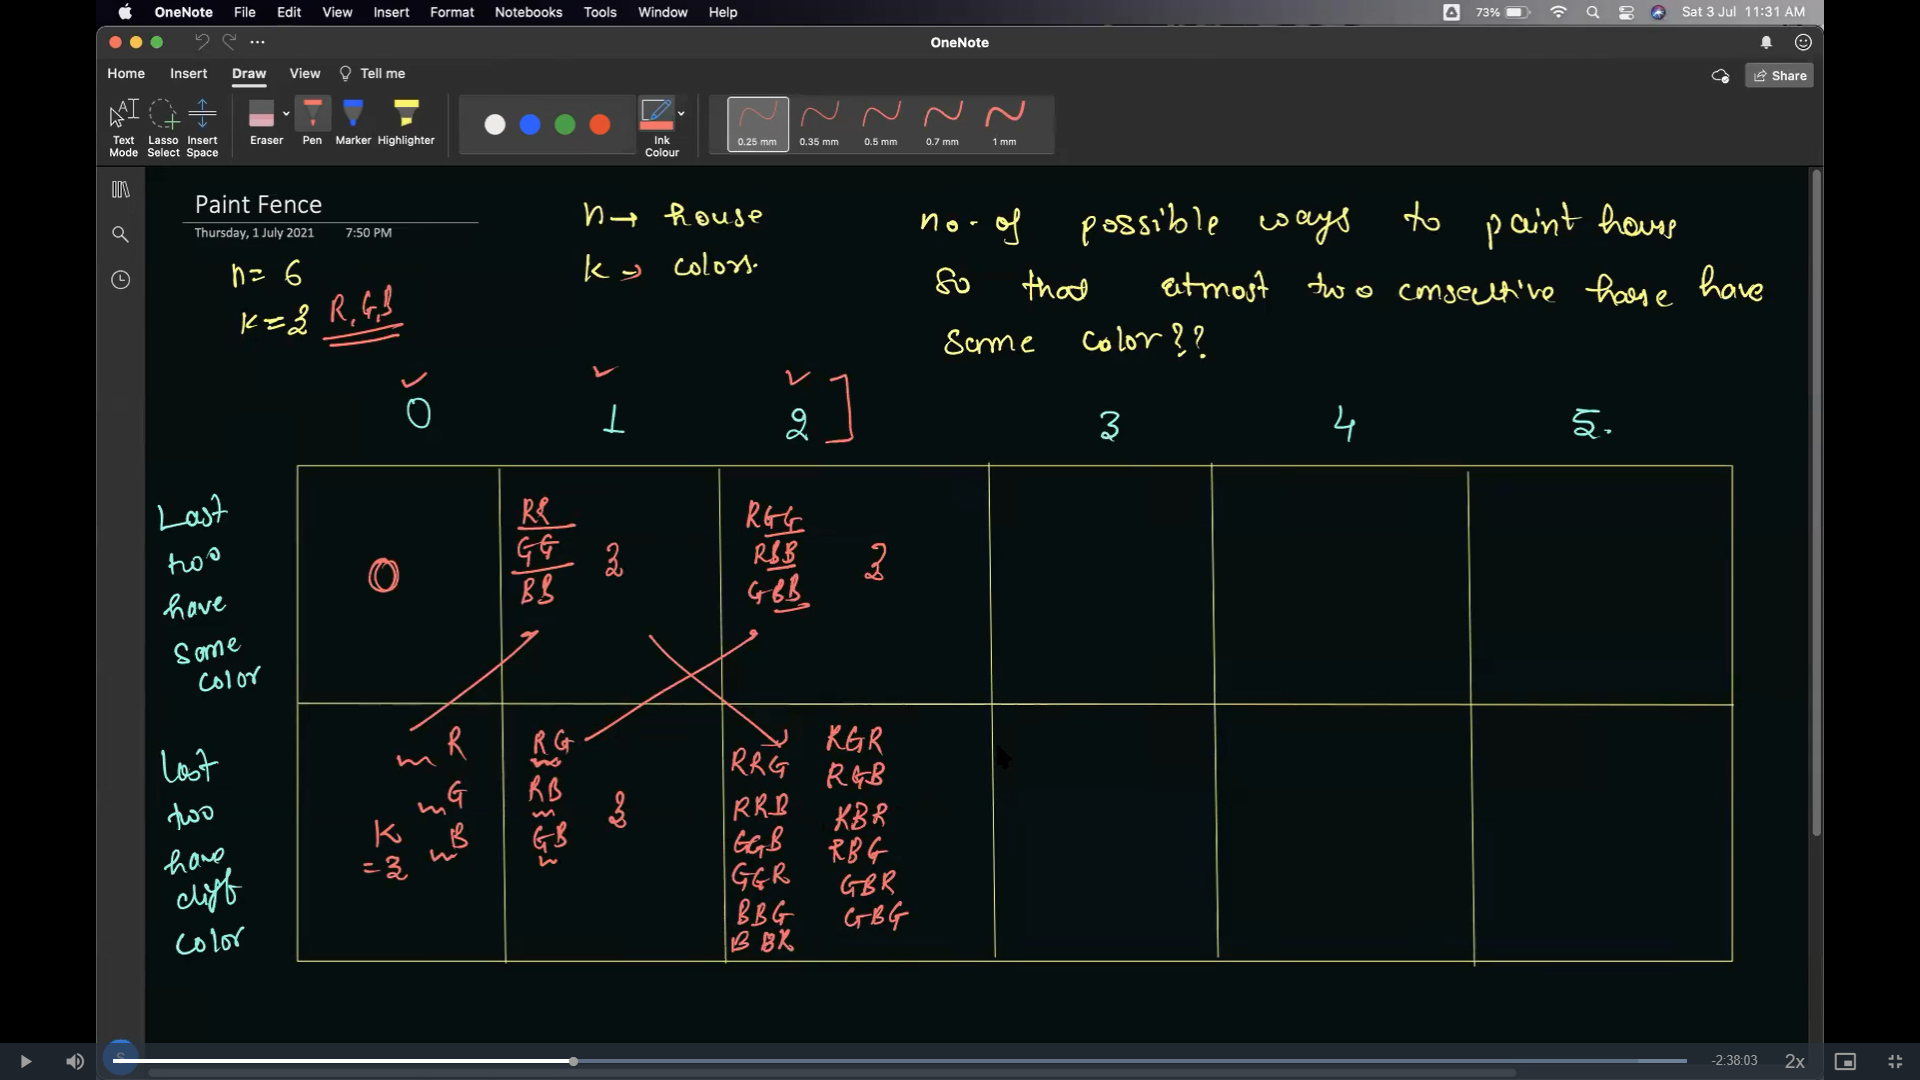 OneNote File Edit View Insert Format Notebooks Tools Window Help 73% Sat 3 Jul 11:31 AM
OneNote
Home Insert Draw View Tell me Share
Text Mode Lasso Select Insert Space Eraser Pen Marker Highlighter Ink Colour 0.25 mm 0.35 mm 0.5 mm 0.7 mm 1 mm
Paint Fence
Thursday, 1 July 2021 7:50 PM
n= 6
k=3 R, G, B
n→ house
k→ colors.
no. of possible ways to paint house
So that atmost two consecutive house have
same color??
0 1 2 3 4 5.
Last
two
have
same
color
0
RR
GG
BB
3
RGG
RBB
GBB
3
last
two
have
diff
color
R
G
B
K
=3
RG
RB
GB
3
RRG
RRB
GGB
GGR
BBG
BBR
RGR
RGB
RBR
RBG
GBR
GBG
-2:38:03 2x